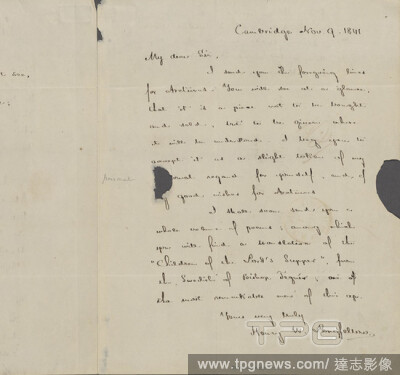 Cambridge Nov. 9. 1841
My dear Sir,
I send you the foregoing lines
for Arcturus. You will see at a glance,
that it is a piece not to be bought
and sold, but to be given where
it will be understood. I beg you to
accept it as a slight token of my
personal regard for yourself, and of
my good wishes for Arcturus
I shall soon send you a
whole volume of poems; among which
you will find a translation of the
"Children of the Lord's Supper", from
the Swedish of Bishop Tegnér; one of
the most remarkable men of this age.
Yours very truly
Henry W. Longfellow
TPG
www.tpgnews.com/達志影像